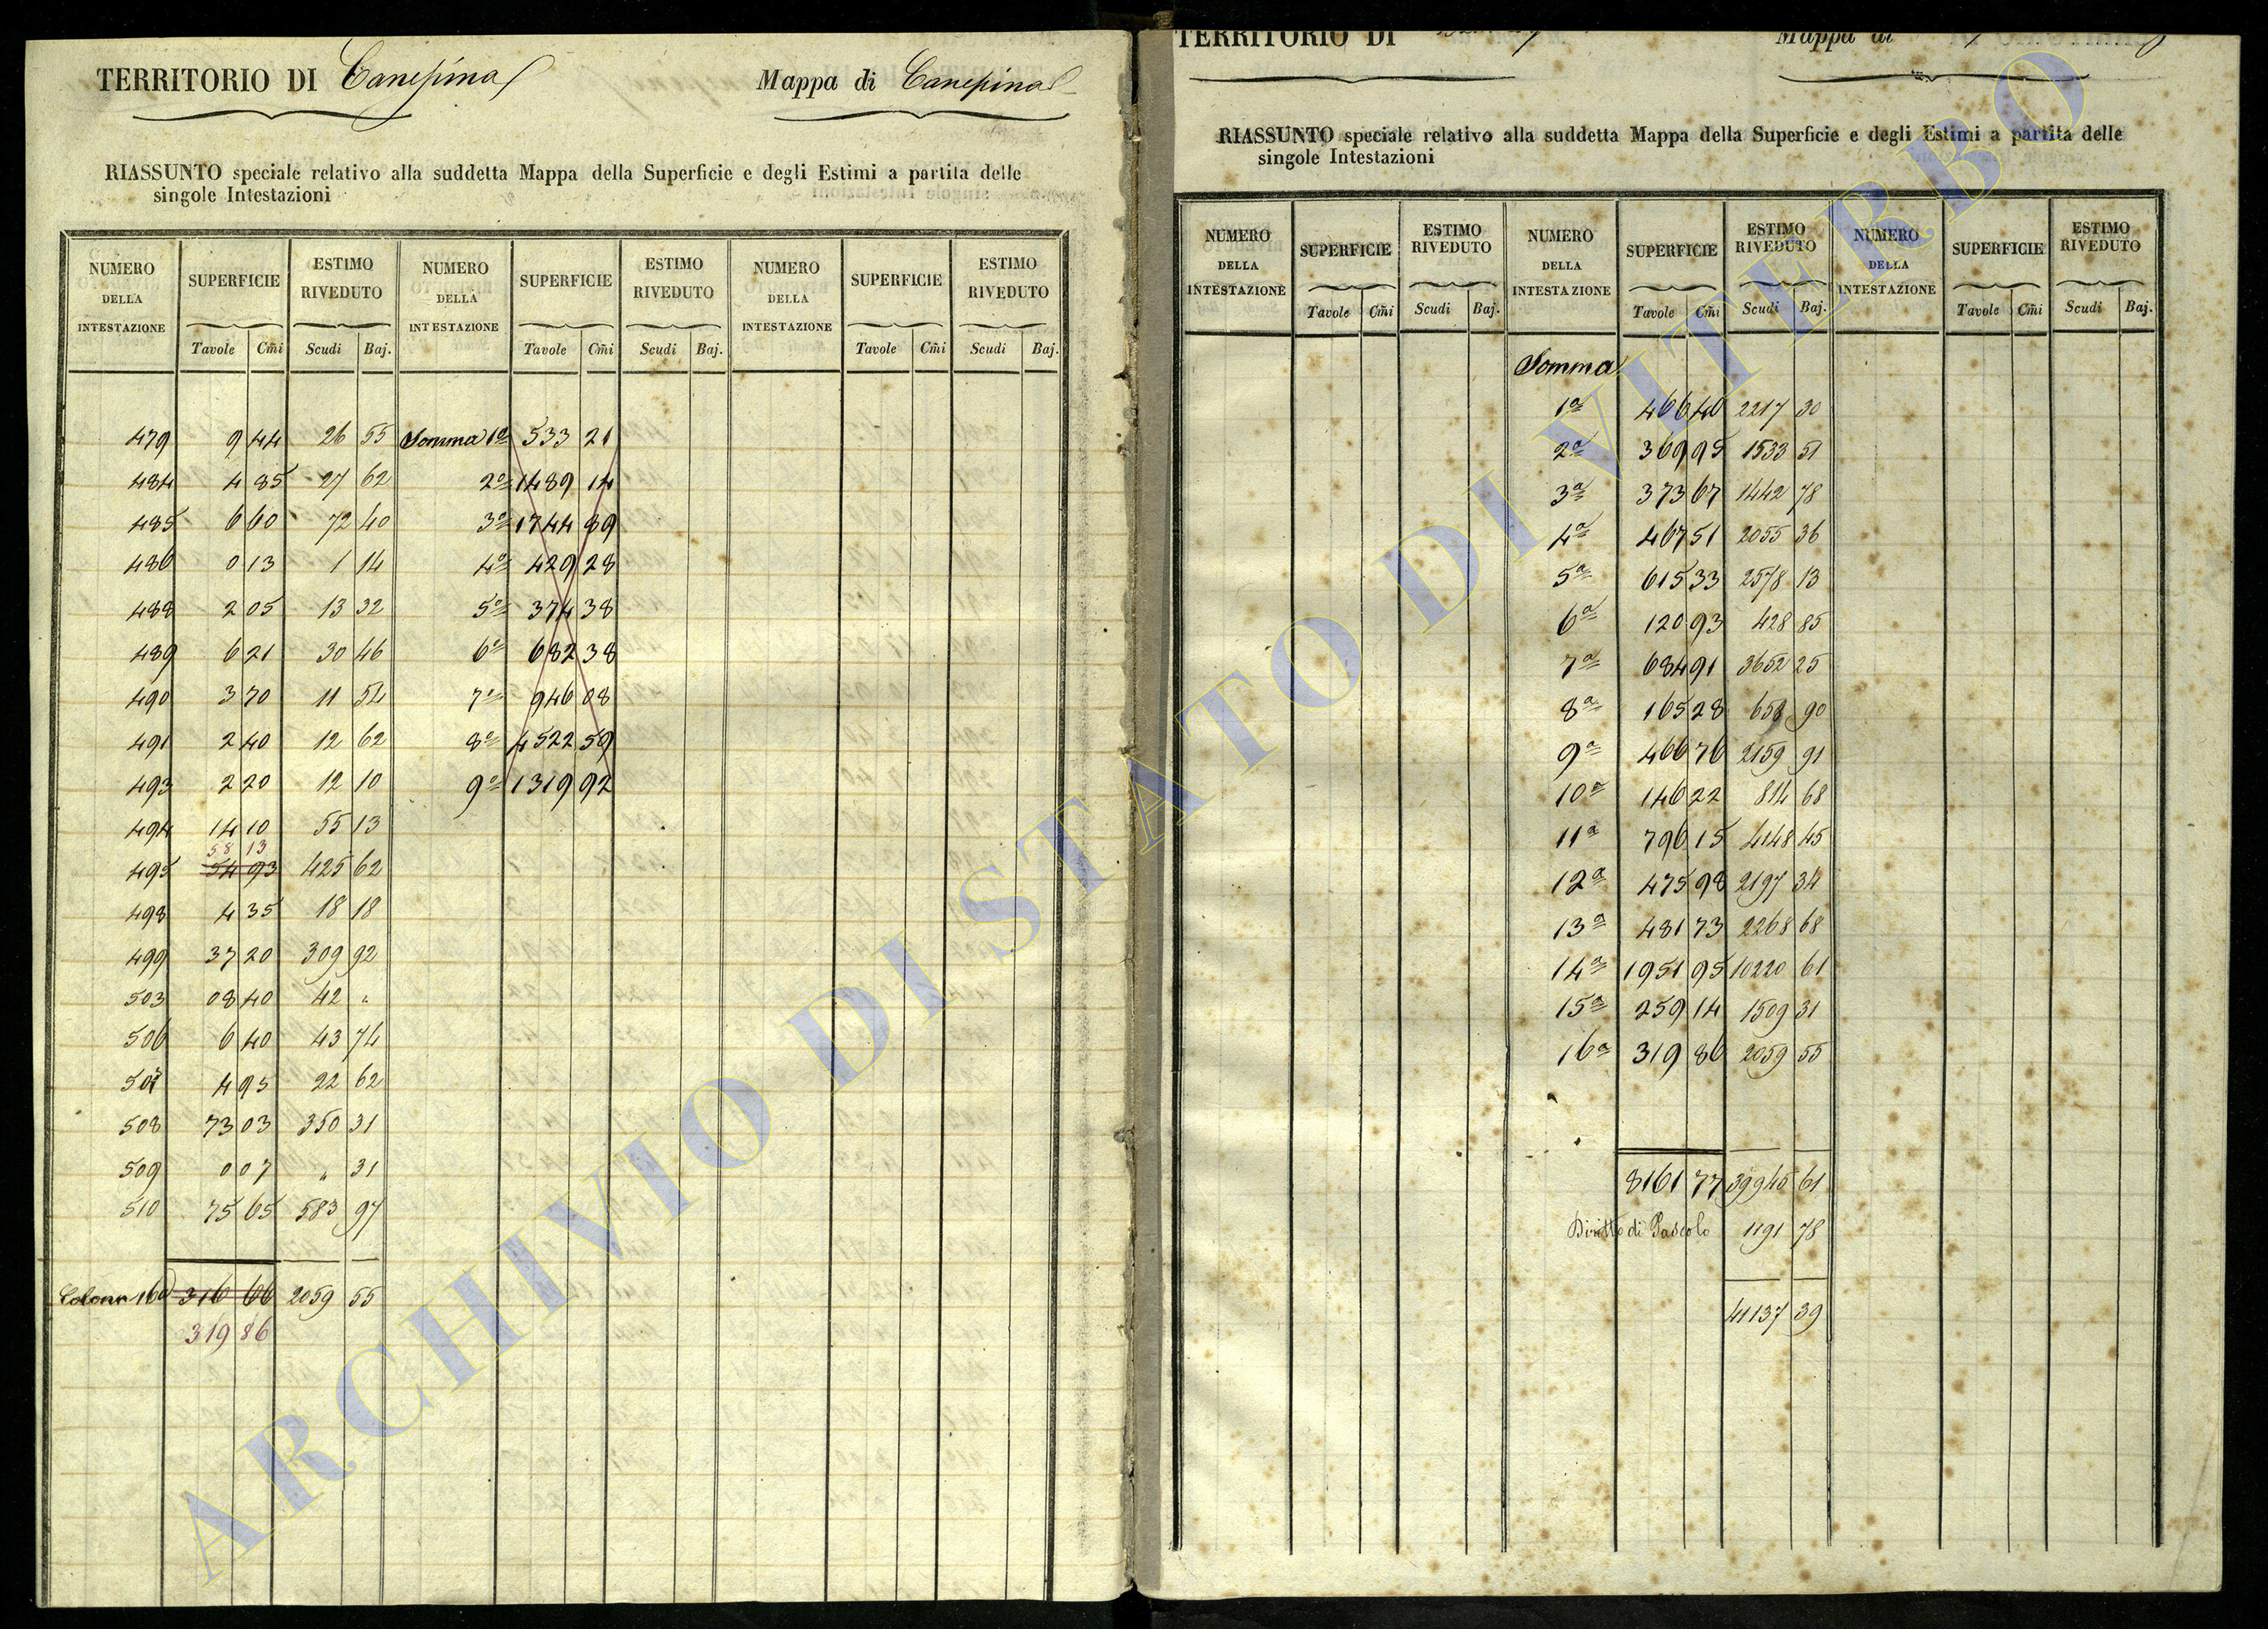 TERRITORIO DI Canepina
Mappa di Canepina
RIASSUNTO speciale relativo alla suddetta Mappa della Superficie e degli Estimi a partita delle
singole Intestazioni
NUMERO DELLA INTESTAZIONE SUPERFICIE ESTIMO RIVEDUTO NUMERO DELLA INTESTAZIONE SUPERFICIE ESTIMO RIVEDUTO NUMERO DELLA INTESTAZIONE SUPERFICIE ESTIMO RIVEDUTO
Tavole Cm̃i Scudi Baj. Tavole Cm̃i Scudi Baj. Tavole Cm̃i Scudi Baj.
479 9 44 26 55 Somma 1a 533 21
484 4 85 27 62 2a 1489 14
485 6 60 72 40 3a 1744 89
486 0 13 1 14 4a 429 28
488 2 05 13 32 5a 374 38
489 6 21 30 46 6a 682 38
490 3 70 11 54 7a 946 08
491 2 40 12 62 8a 4522 59
493 2 20 12 10 9a 1319 92
494 14 10 55 13
58 13
495 54 93 425 62
498 4 35 18 18
499 37 20 309 92
503 08 40 42 "
506 6 40 43 74
507 4 95 22 62
508 73 03 350 31
509 0 07 " 31
510 75 65 583 97
Colonn 16a 316 66 2059 55
319 86
TERRITORIO DI
Mappa di
RIASSUNTO speciale relativo alla suddetta Mappa della Superficie e degli Estimi a partita delle
singole Intestazioni
NUMERO DELLA INTESTAZIONE SUPERFICIE ESTIMO RIVEDUTO NUMERO DELLA INTESTAZIONE SUPERFICIE ESTIMO RIVEDUTO NUMERO DELLA INTESTAZIONE SUPERFICIE ESTIMO RIVEDUTO
Tavole Cm̃i Scudi Baj. Tavole Cm̃i Scudi Baj. Tavole Cm̃i Scudi Baj.
Somma
1a 466 40 2217 30
2a 369 95 1533 51
3a 373 67 1442 78
4a 467 51 2055 36
5a 615 33 2578 13
6a 120 93 428 85
7a 684 91 3652 25
8a 165 28 658 90
9a 466 76 2159 91
10a 146 22 814 68
11a 796 15 4148 45
12a 475 98 2197 34
13a 481 73 2268 68
14a 1951 95 10220 61
15a 259 14 1509 31
16a 319 86 2059 55
8161 77 39945 61
Diritto di Pascolo 1191 78
41137 39
ARCHIVIO DI STATO DI VITERBO